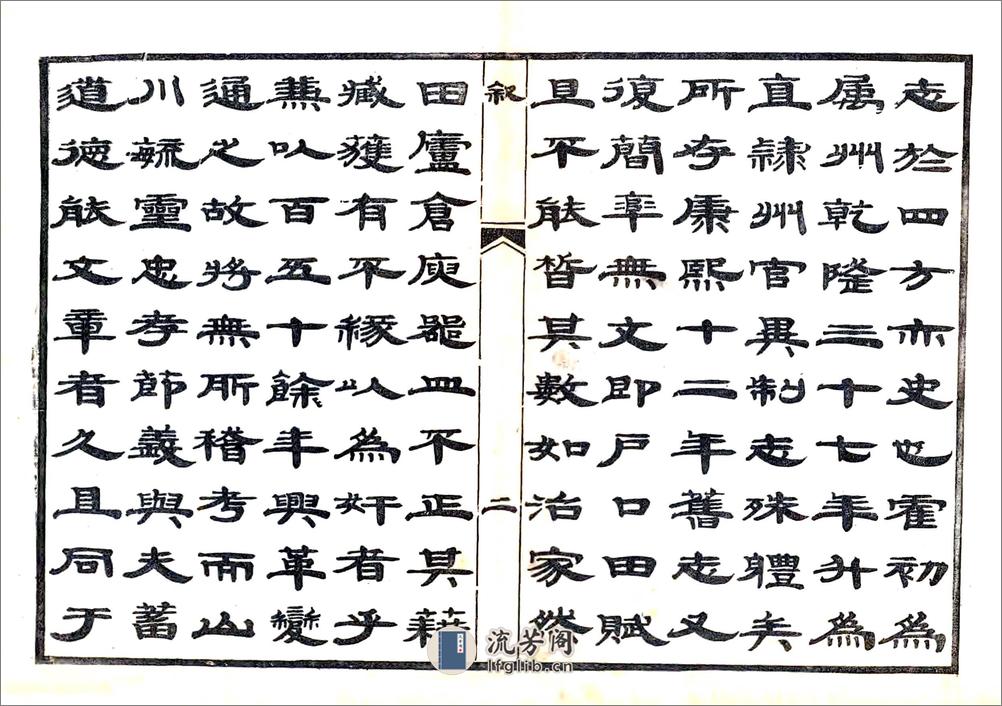 志於四方亦史也霍初為
屬州乾隆三十七年升為
直隸州官異制志殊體矣
所存康熙十二年舊志又
復簡率無文即戶口田賦
且不能晳其數如治家然
叙
二
田廬倉庾器皿不正其藉
藏獲有不緣以為奸者乎
蕪以百五十餘年興革變
通之故將無所稽考而山
川毓靈忠孝節義與夫蓄
道德能文章者久且同于
流芳阁
lfglib.cn